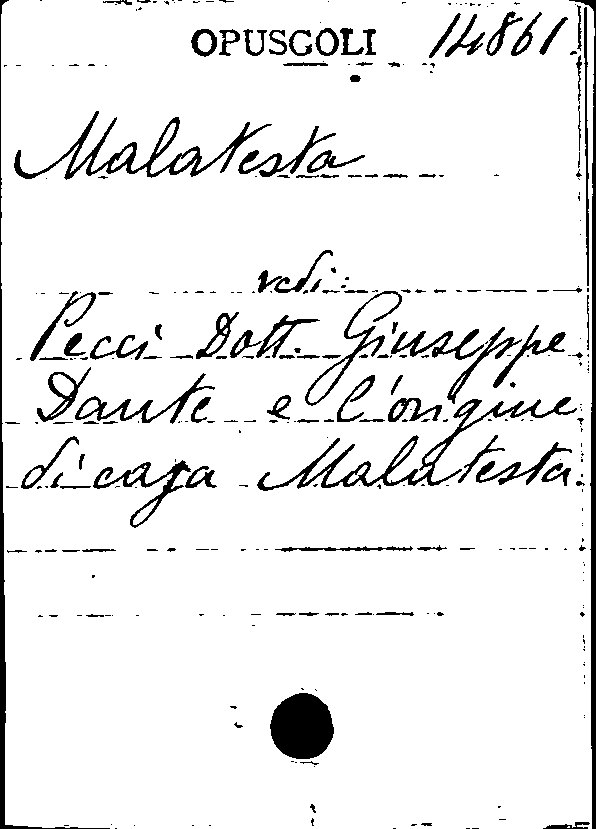 OPUSCOLI 14861
Malatesta
vedi:
Pecci Dott. Giuseppe
Dante e l'origine
di casa Malatesta.